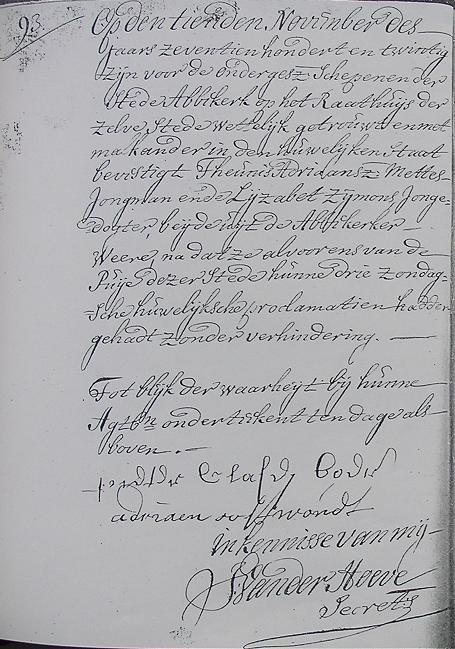 93
Op den tienden November des
Jaars zeventien hondert en twintig
zijn voor de ondergesz: Schepenen der
Stede Abbikerk op het Raathuijs der
zelve Stede wettelijk getrouwt en met
malkander in den huwelijken Staat
bevestigt Theunis Adriaansz: Mettes
Jongman ende Lijzabet Zijmons Jonge-
dogter, beijde uijt de Abbikerker
Weere, na dat ze alvoorens van de
Puije dezer Stede hunne drie zondag-
sche huwelijksche proclamatien hadden
gehadt zonder verhindering.
Tot blijk der waarheijt bij hunne
Agtb:n ondertekent ten dage als
boven.
Claesz
adriaen
In kennisse van mij
Vander Hoeve
Secrets